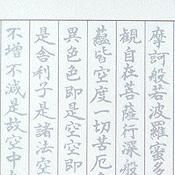 摩訶般若波羅蜜多
觀自在菩薩行深般
蘊皆空度一切苦厄
異色色即是空空即
是舍利子是諸法空
不增不減是故空中